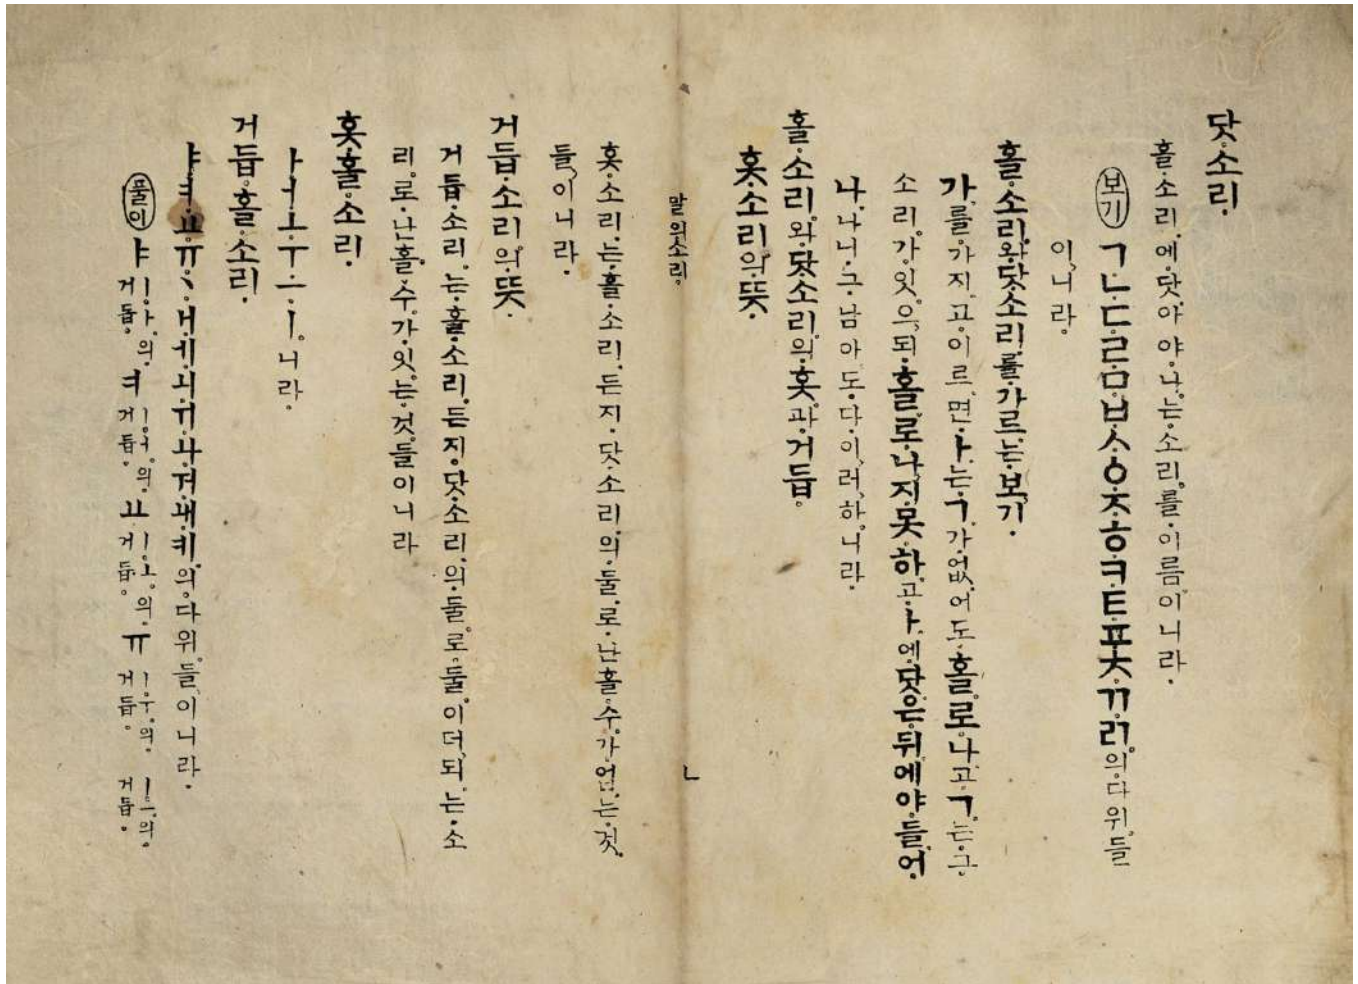 닷소리.
홀.소리.에닷아야.나.는소리.를.이름이니라.
보기 ㄱㄴㄷㄹㅁㅂㅅㆁㅈㅎㅋㅌㅍㅊㄲㄹㄱ의다위.들
이.니라.
홀.소리.와닷소리.를가르는보기.
가.를가지고이르면ㅏ.는ㄱ.가없어도홀로나고ㄱ.는그
소리.가잇으되홀로나지못하고ㅏ.에닷은뒤에야들어
나.나니그남아도다이러하니라.
홀.소리.와닷소리.의홋.과거듭.
홋소리.의뜻.
말의소리.
ㄴ
홋소리.는홀소리.든지닷소리.의둘.로난홀수.가없는것.
들.이니라.
거듭소리.의뜻.
거듭소리.는홀소리.든지닷소리.의둘.로둘.이더되는소
리.로난홀수.가잇는것.들이니라
홋홀소리.
ㅏㅓㅗㅜㅡㅣ.니라.
거듭홀소리.
ㅑㅕㅛㅠ、ㅐㅔㅚㅟㅘㅝㅙㅞ.의다위.들이니라.
풀이 ㅑ ㅣㅏ.의거듭. ㅕ ㅣㅓ.의거듭. ㅛ ㅣㅗ.의거듭. ㅠ ㅣㅜ.의거듭. ㅣㅡ.의거듭.